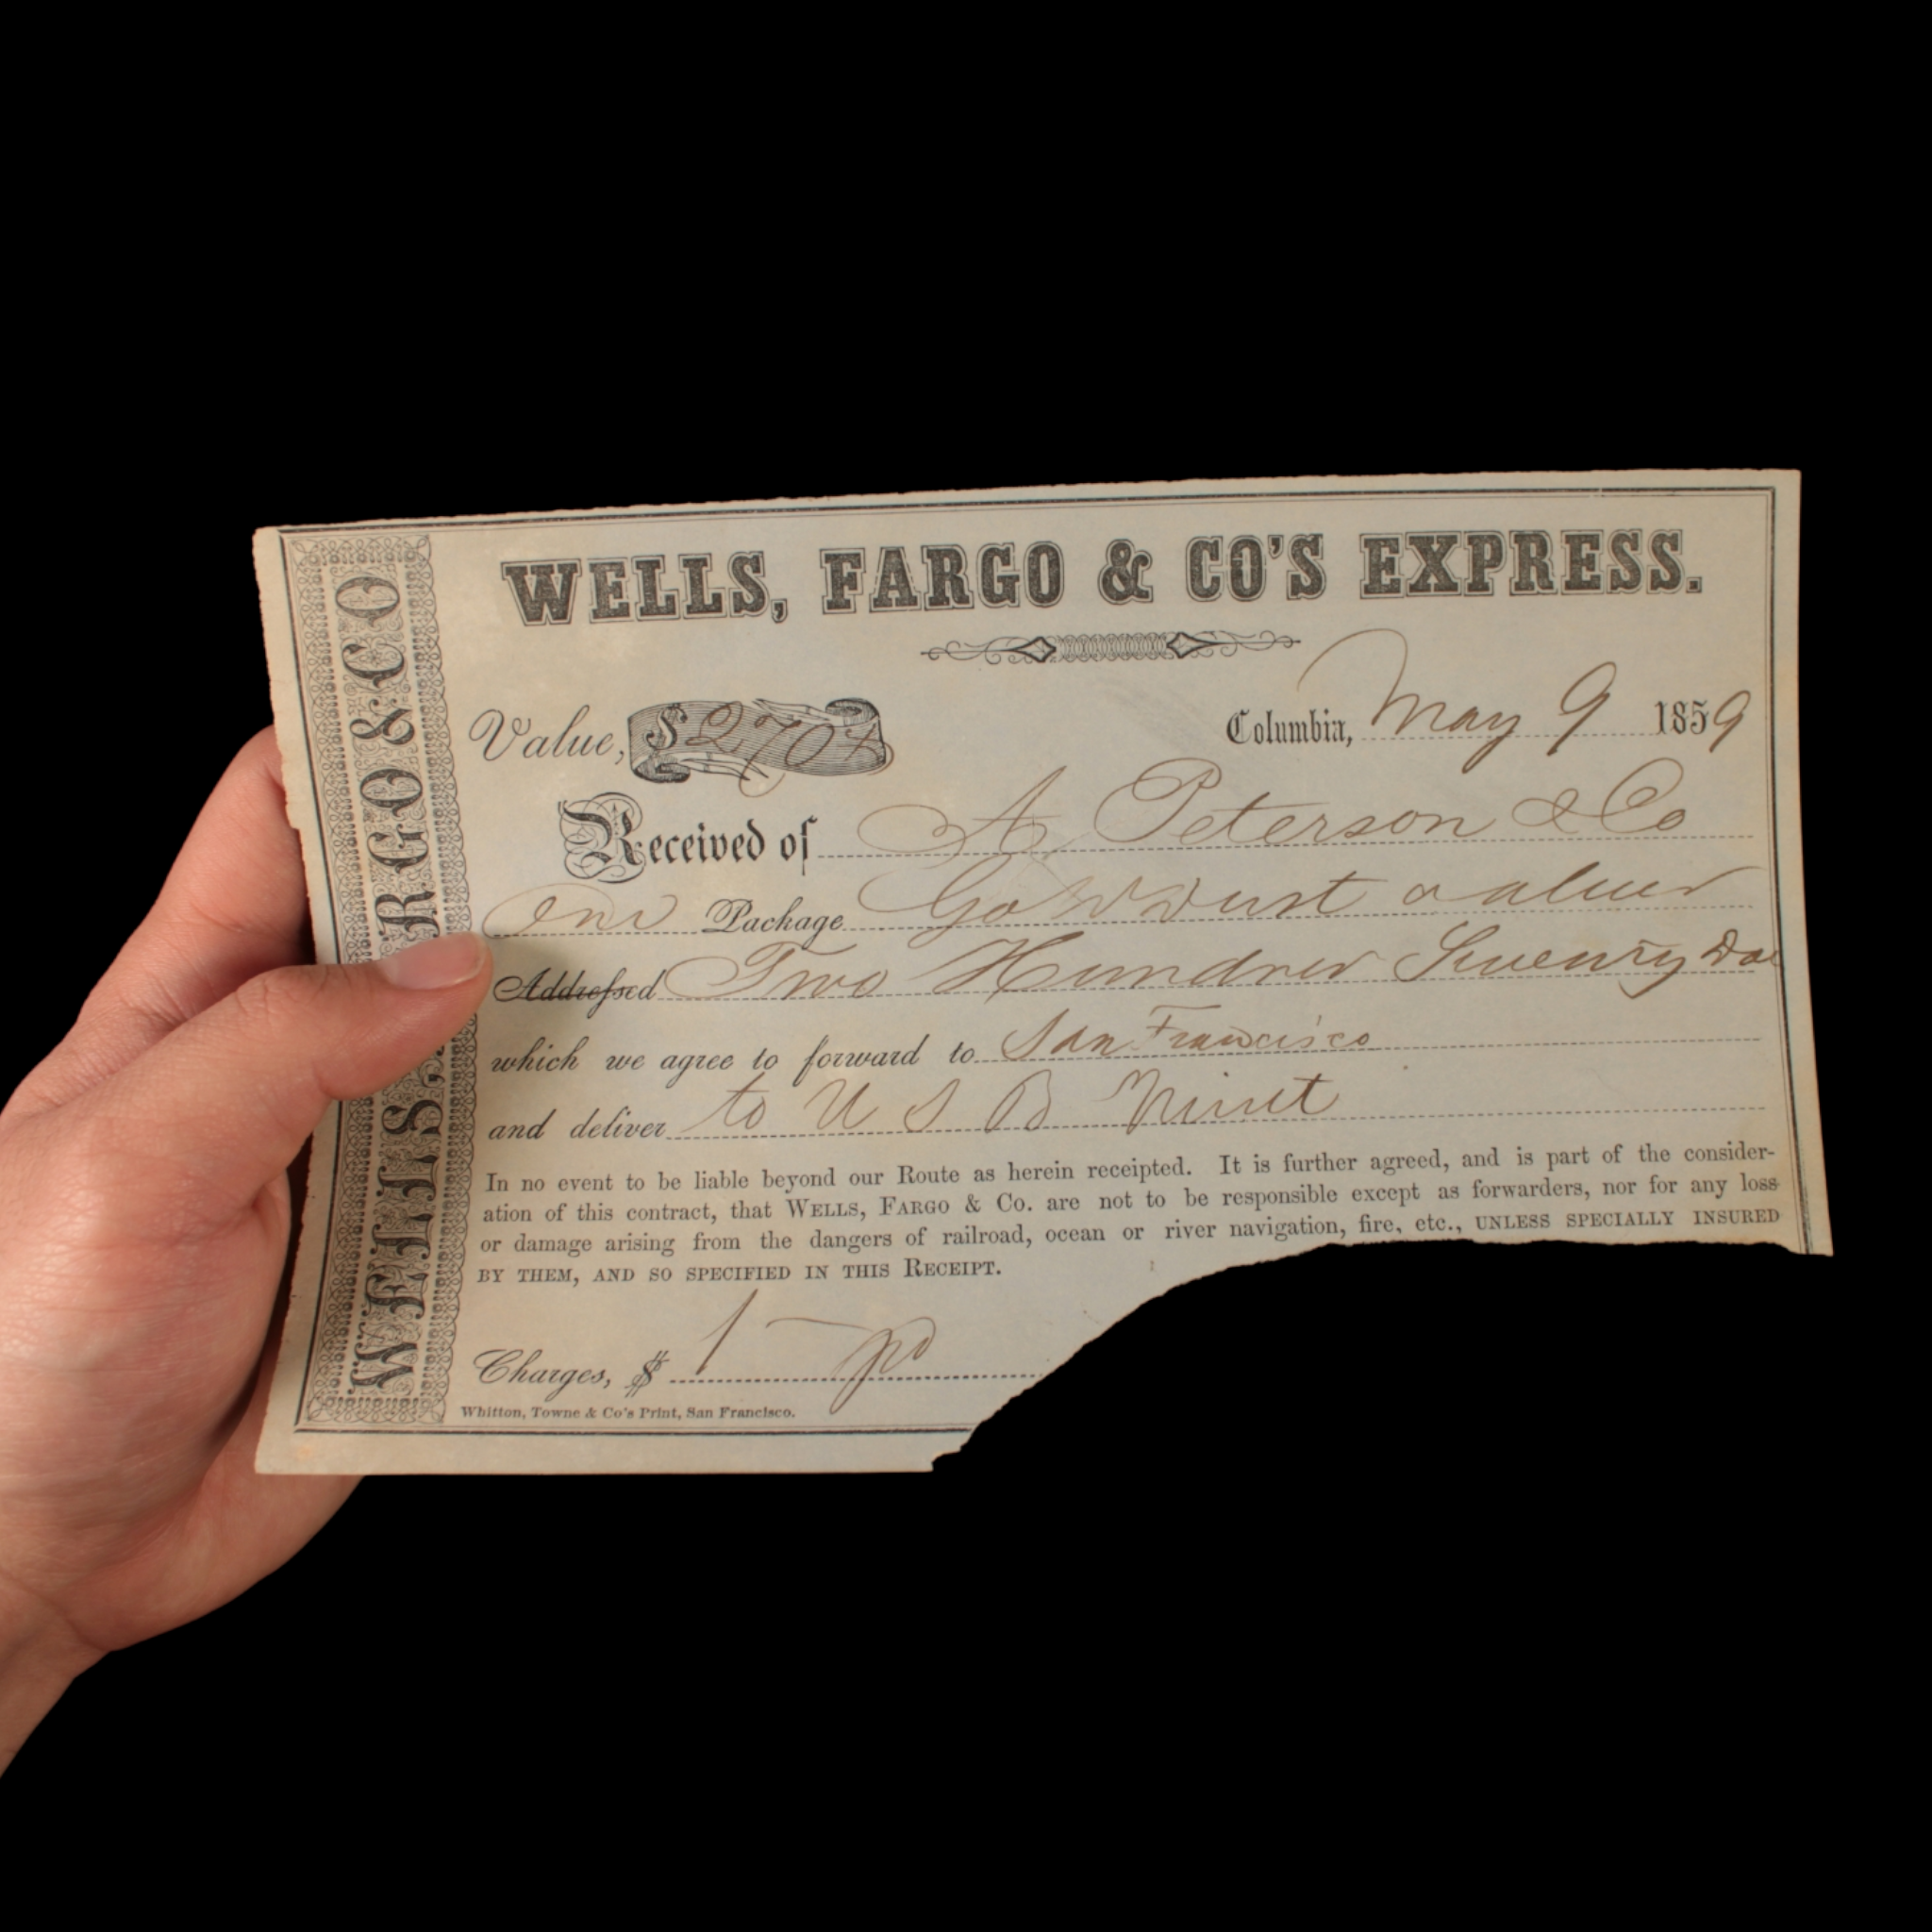 WELLS, FARGO & CO
WELLS, FARGO & CO'S EXPRESS.
Value, $270
Columbia, May 9 1859
Received of A Peterson & Co
One Package Gold Dust valued
Addressed Two Hundred Seventy Dol
which we agree to forward to San Francisco
and deliver to U S B Mint
In no event to be liable beyond our Route as herein receipted. It is further agreed, and is part of the consider-
ation of this contract, that WELLS, FARGO & Co. are not to be responsible except as forwarders, nor for any loss
or damage arising from the dangers of railroad, ocean or river navigation, fire, etc., UNLESS SPECIALLY INSURED
BY THEM, AND SO SPECIFIED IN THIS RECEIPT.
Charges, $ 1 — pd
Whitton, Towne & Co's Print, San Francisco.